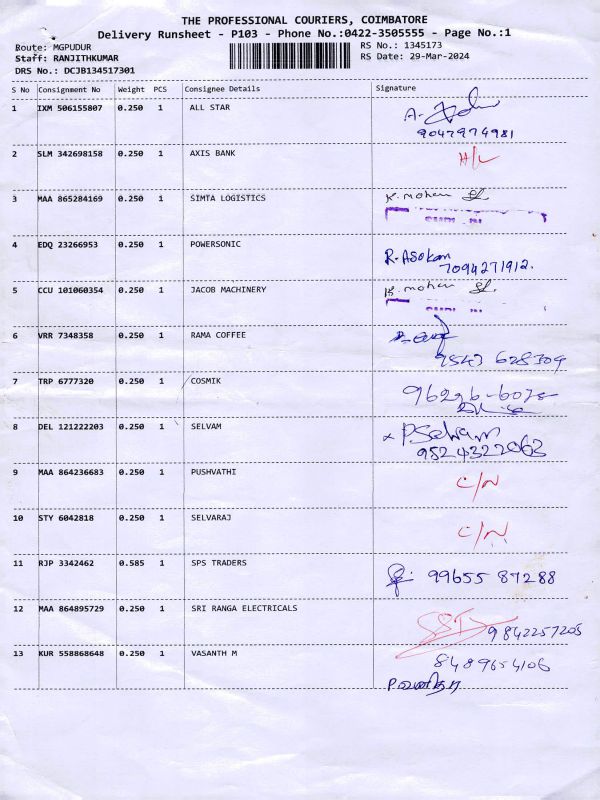 THE PROFESSIONAL COURIERS, COIMBATORE
Delivery Runsheet - P103 - Phone No.:0422-3505555 - Page No.:1
Route: MGPUDUR RS No.: 1345173
Staff: RANJITHKUMAR RS Date: 29-Mar-2024
DRS No.: DCJB134517301
S No Consignment No Weight PCS Consignee Details Signature
1 IXM 506155807 0.250 1 ALL STAR A.
9047974981
2 SLM 342698158 0.250 1 AXIS BANK H/L
3 MAA 865284169 0.250 1 SIMTA LOGISTICS K. mohan
4 EDQ 23266953 0.250 1 POWERSONIC R. Asokan
7094271912.
5 CCU 101060354 0.250 1 JACOB MACHINERY K. mohan
6 VRR 7348358 0.250 1 RAMA COFFEE
9547 628309
7 TRP 6777320 0.250 1 COSMIK
8 DEL 121222203 0.250 1 SELVAM x P Selvam
9524322063
9 MAA 864236683 0.250 1 PUSHVATHI C/N
10 STY 6042818 0.250 1 SELVARAJ C/N
11 RJP 3342462 0.585 1 SPS TRADERS 99655 87288
12 MAA 864895729 0.250 1 SRI RANGA ELECTRICALS 9842257205
13 KUR 558868648 0.250 1 VASANTH M 8489654106